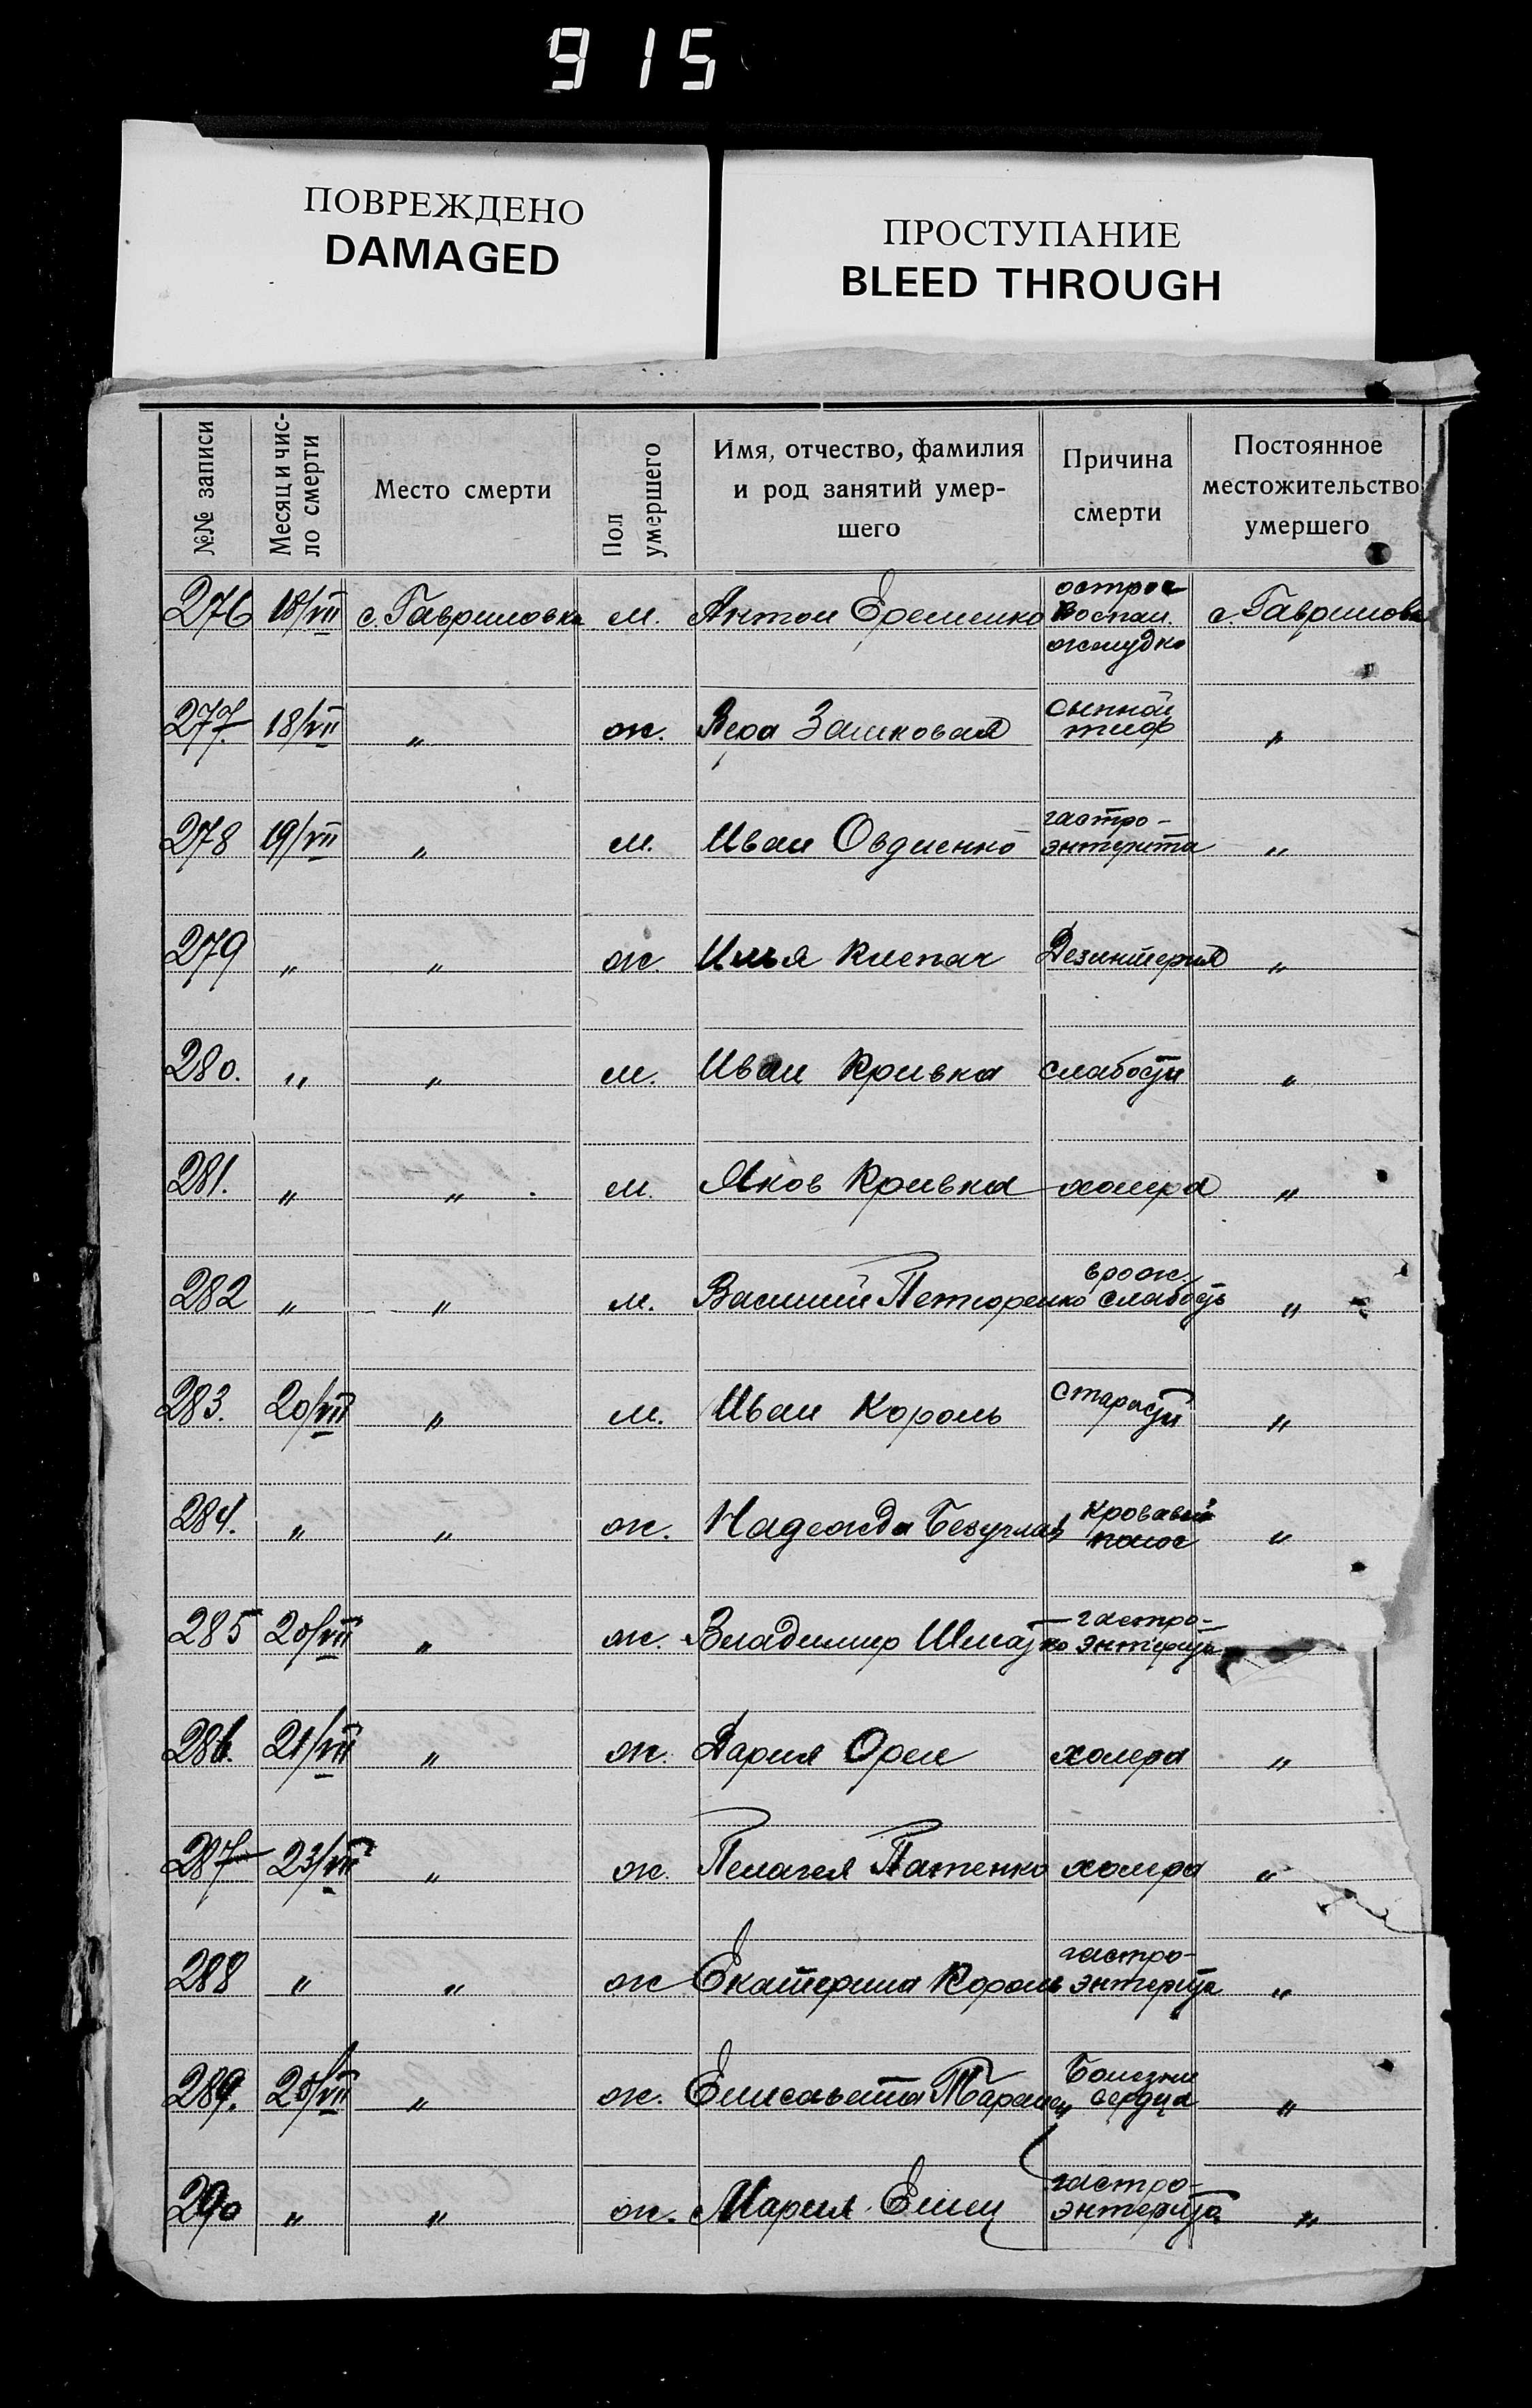 9 15
ПОВРЕЖДЕНО
DAMAGED
ПРОСТУПАНИЕ
BLEED THROUGH
№№ записи
Месяц и чис-
ло смерти
Место смерти
Пол
умершего
Имя, отчество, фамилия
и род занятий умер-
шего
Причина
смерти
Постоянное
местожительство
умершего
276 18/VII с. Гавриловка м. Антон Еременко острое воспал. желудка с. Гавриловка
277. 18/VII " ж. Вера Зашковая сыпной тиф "
278 19/VII " м. Иван Овдиенко гастро-энтерита "
279 " " ж. Илья Клепач Дезинтерия "
280. " " м. Иван Кривка слабости "
281. " " м. Яков Кривка холера "
282 " " м. Василий Петюренко врож. слабость "
283. 20/VII " м. Иван Король старости "
284. " " ж. Надежда Безуглая кровавый понос "
285 20/VII " ж. Владимир Шматко гастро-энтерита
286. 21/VII " ж. Дария Орел холера "
287 23/VII " ж. Пелагея Патенко холера "
288 " " ж Екатерина Король гастро-энтерита "
289. 25/VII " ж. Елисавета Таранец Болезни сердца "
290 " " ж. Мария Елец гастро-энтерита "